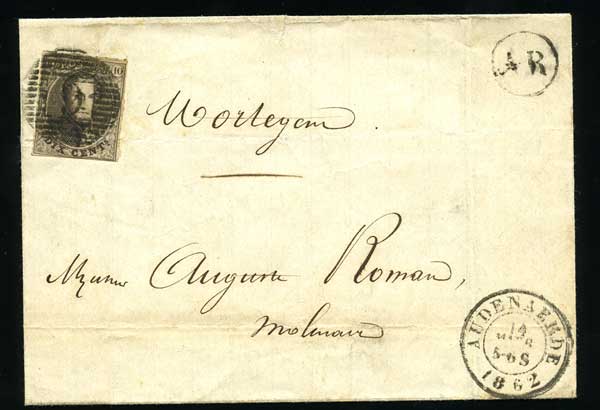 10
DIX CENTS
AR
Mortegem.
Monsieur Auguste Roman,
AUDENAERDE
14
5-6 S
1862